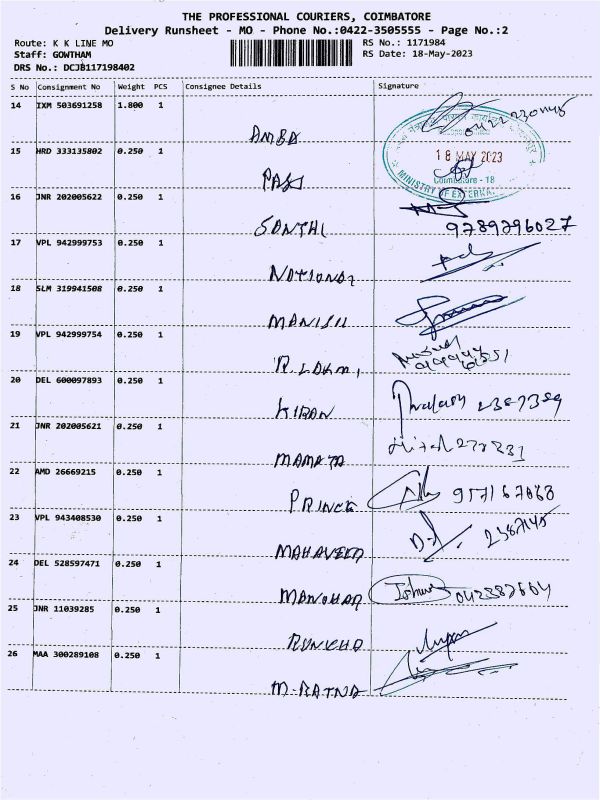 THE PROFESSIONAL COURIERS, COIMBATORE
Delivery Runsheet - MO - Phone No.:0422-3505555 - Page No.:2
Route: K K LINE MO
RS No.: 1171984
Staff: GOWTHAM
RS Date: 18-May-2023
DRS No.: DCJB117198402
S No Consignment No Weight PCS Consignee Details Signature
14 IXM 503691258 1.800 1
AMBA
15 HRD 333135802 0.250 1
18 MAY 2023
Coimbatore - 18
MINISTRY OF EXTERNAL
16 JNR 202005622 0.250 1
SANTHI 9789296027
17 VPL 942999753 0.250 1
NATIONAL
18 SLM 319941508 0.250 1
MANISH
19 VPL 942999754 0.250 1
R. LAKMI
20 DEL 600097893 0.250 1
KIRAN 2387389
21 JNR 202005621 0.250 1
MAMATA
22 AMD 26669215 0.250 1
PRINCE
23 VPL 943408530 0.250 1
MAHAVEER 2387145
24 DEL 528597471 0.250 1
MANOHAR
25 JNR 11039285 0.250 1
26 MAA 300289108 0.250 1
M-RATNA